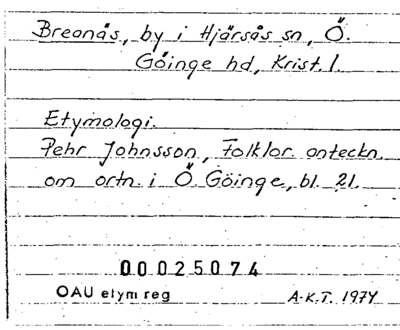 Breanäs, by i Hjärsås sn, Ö.
Göinge hd, Krist. l.
Etymologi.
Pehr Johnsson, Folklor. anteckn.
om ortn. i Ö. Göinge, bl. 21.
00025074
OAU etym reg A.K.T. 1974